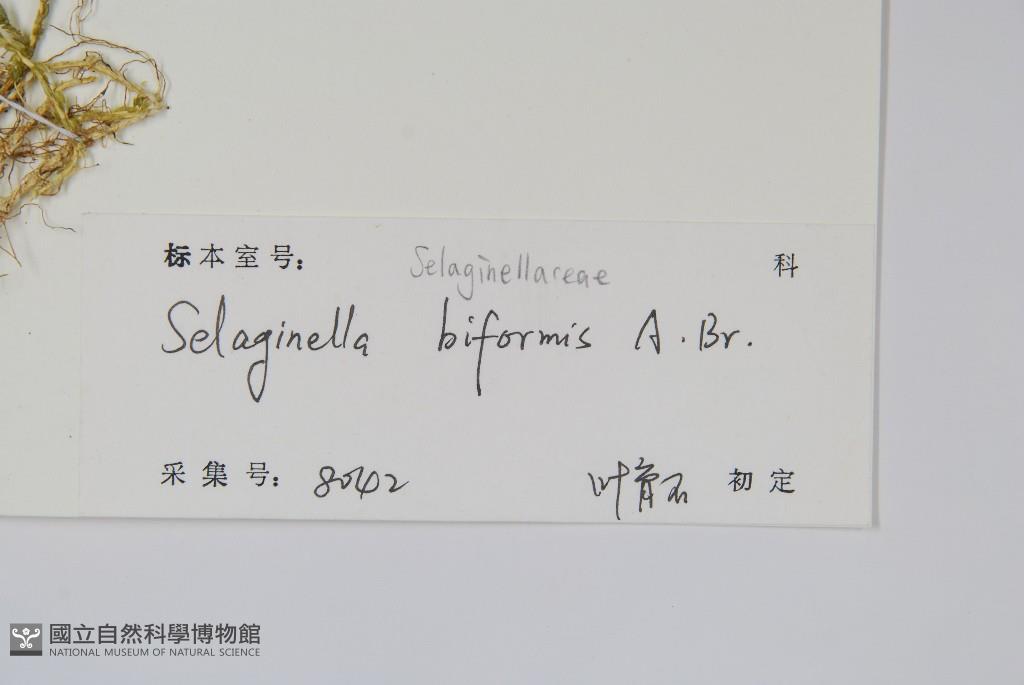 标本室号： Selaginellareae 科
Selaginella biformis A. Br.
采集号： 8042 叶育石 初定
國立自然科學博物館
NATIONAL MUSEUM OF NATURAL SCIENCE